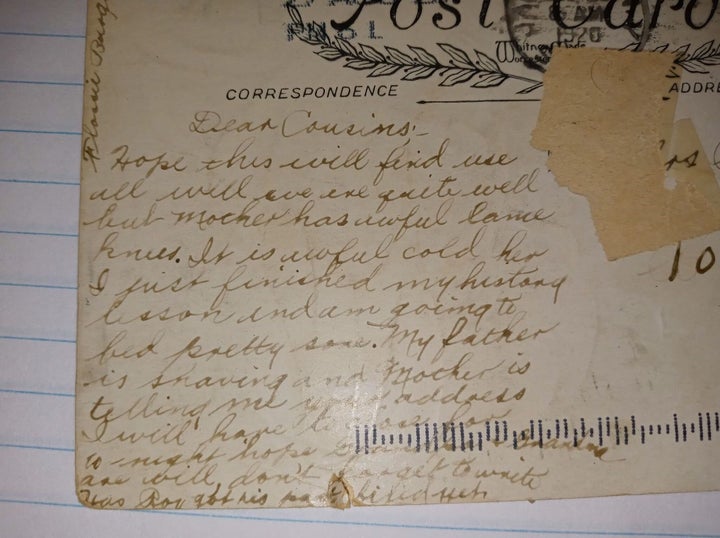 Post Card
1920
Whitney Made
Worcester
CORRESPONDENCE
ADDRE
Flossie
rs
10
Dear Cousins:-
Hope this will find use
all well we are quite well
but Mother has awful lame
knees. It is awful cold her
I just finished my history
lesson and am going to
bed pretty soon. My father
is shaving and Mother is
telling me your address
I will have to close for
to night hope
are will, don't forget to write
Has Roy got his